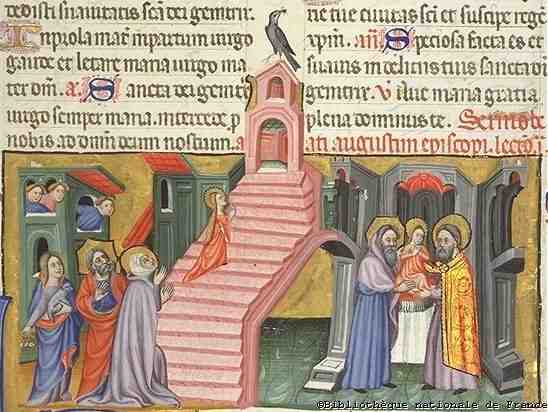 tedisti suauitatis scā dei genitrix.
In prola mať in partum uirgo
gaude et letare maria uirgo ma
ter dñi. a Sancta dei genitř
uirgo semper maria. intercede p
nobis ad dñm deum nostrum. a
ne tue ciuitas scī et suscipe regē
xpm̄. añ. Speciosa facta es et
suauis in deliciis tuis sancta di
genitrix. V Aue maria gratia
plena dominus te. Sermo be
ati augustini episcopi. lectio. i
©Bibliothèque nationale de France